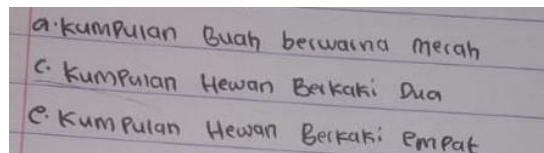 a. Kumpulan Buah berwarna merah
c. Kumpulan Hewan Berkaki Dua
e. Kumpulan Hewan Berkaki empat